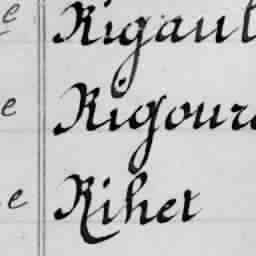 e Rigaul
e Rigour
e Rihet